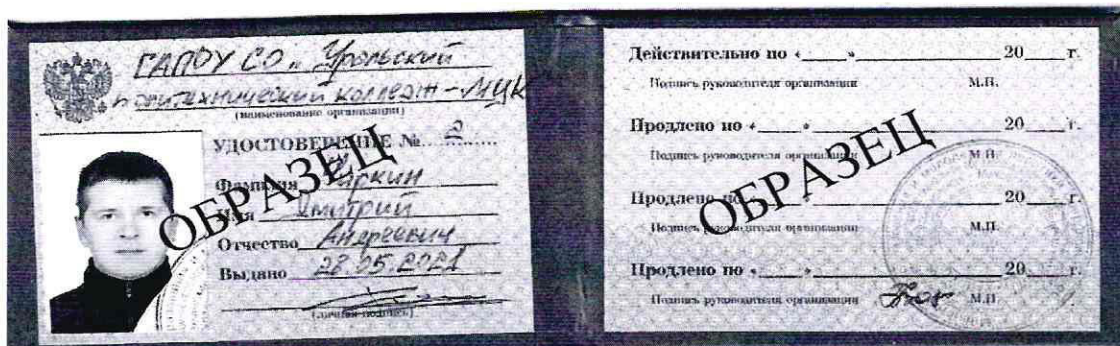 ГАПОУ СО „ Уральский
политехнический колледж - МЦК
(наименование организации)
УДОСТОВЕРЕНИЕ № 2
Фамилия
Имя Дмитрий
Отчество Андреевич
Выдано 28.05.2021
(личная подпись)
ОБРАЗЕЦ
Действительно по «____» 20___г.
Подпись руководителя организации М.П.
Продлено по «____» 20___г.
Подпись руководителя организации М.П.
Продлено по «____» 20___г.
Подпись руководителя организации М.П.
Продлено по «____» 20___г.
Подпись руководителя организации М.П.
ОБРАЗЕЦ